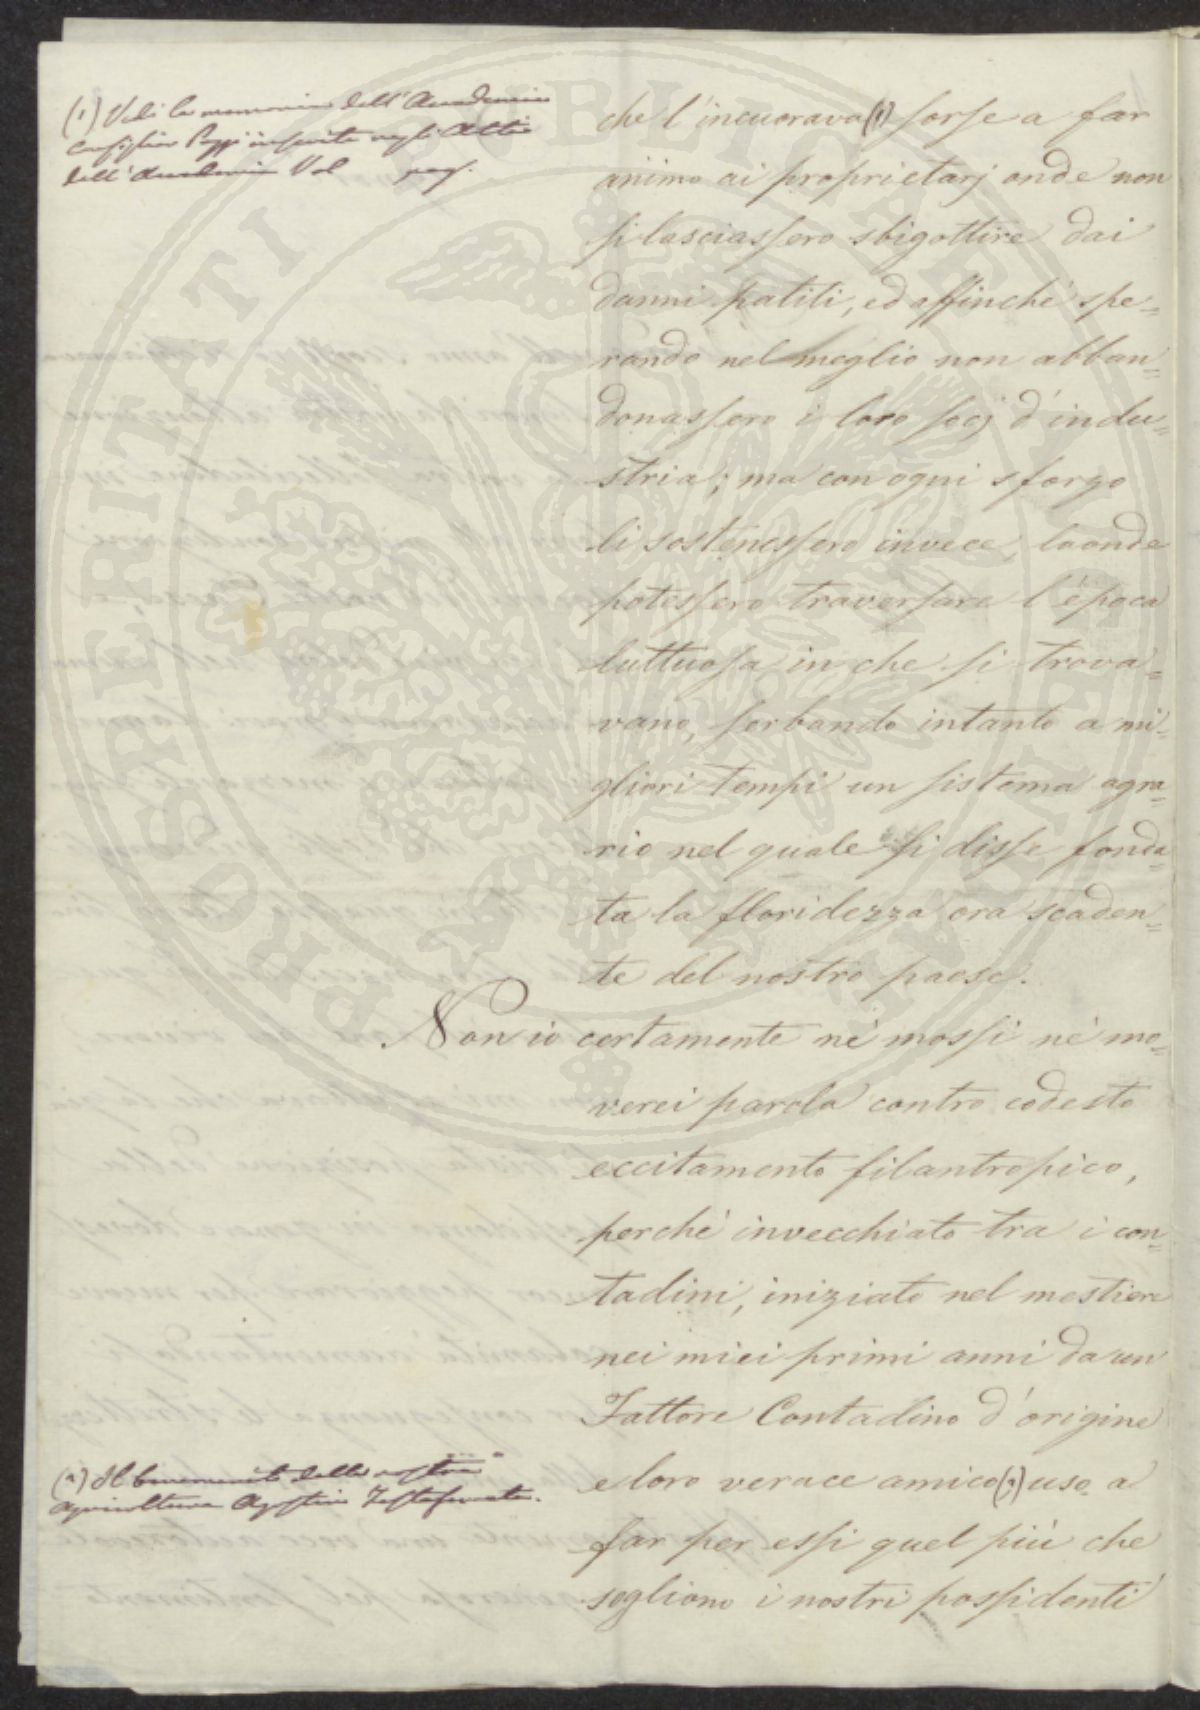 (1) Vedi la memoria dell'Accademico
consiglier Poggi inserita negli Atti
dell'Accademia Vol pag.
che l'incuorava (1) sorse a far
animo ai proprietarj onde non
si lasciassero sbigottire dai
danni patiti, ed affinché spe=
rando nel meglio non abban=
donassero i loro socj d'indu=
stria; ma con ogni sforzo
li sostenessero invece, laonde
potessero traversare l'época
luttuosa in che si trova=
vano, serbando intanto a mi=
gliori tempi un sistema agra=
rio nel quale si disse fonda=
ta la floridezza ora scaden=
te del nostro paese.
Non io certamente né mossi né mo=
verei parola contro codesto
eccitamento filantropico,
perché invecchiato tra i con=
tadini, iniziato nel mestiere
nei miei primi anni da un
Fattore Contadino d'origine
e loro verace amico (2) uso a
far per essi quel più che
sogliono i nostri possidenti
(2) Il benemerito della nostra
agricoltura Agostino Testaferrata.
PROSPERITATI PUBLICAE AUGENDAE